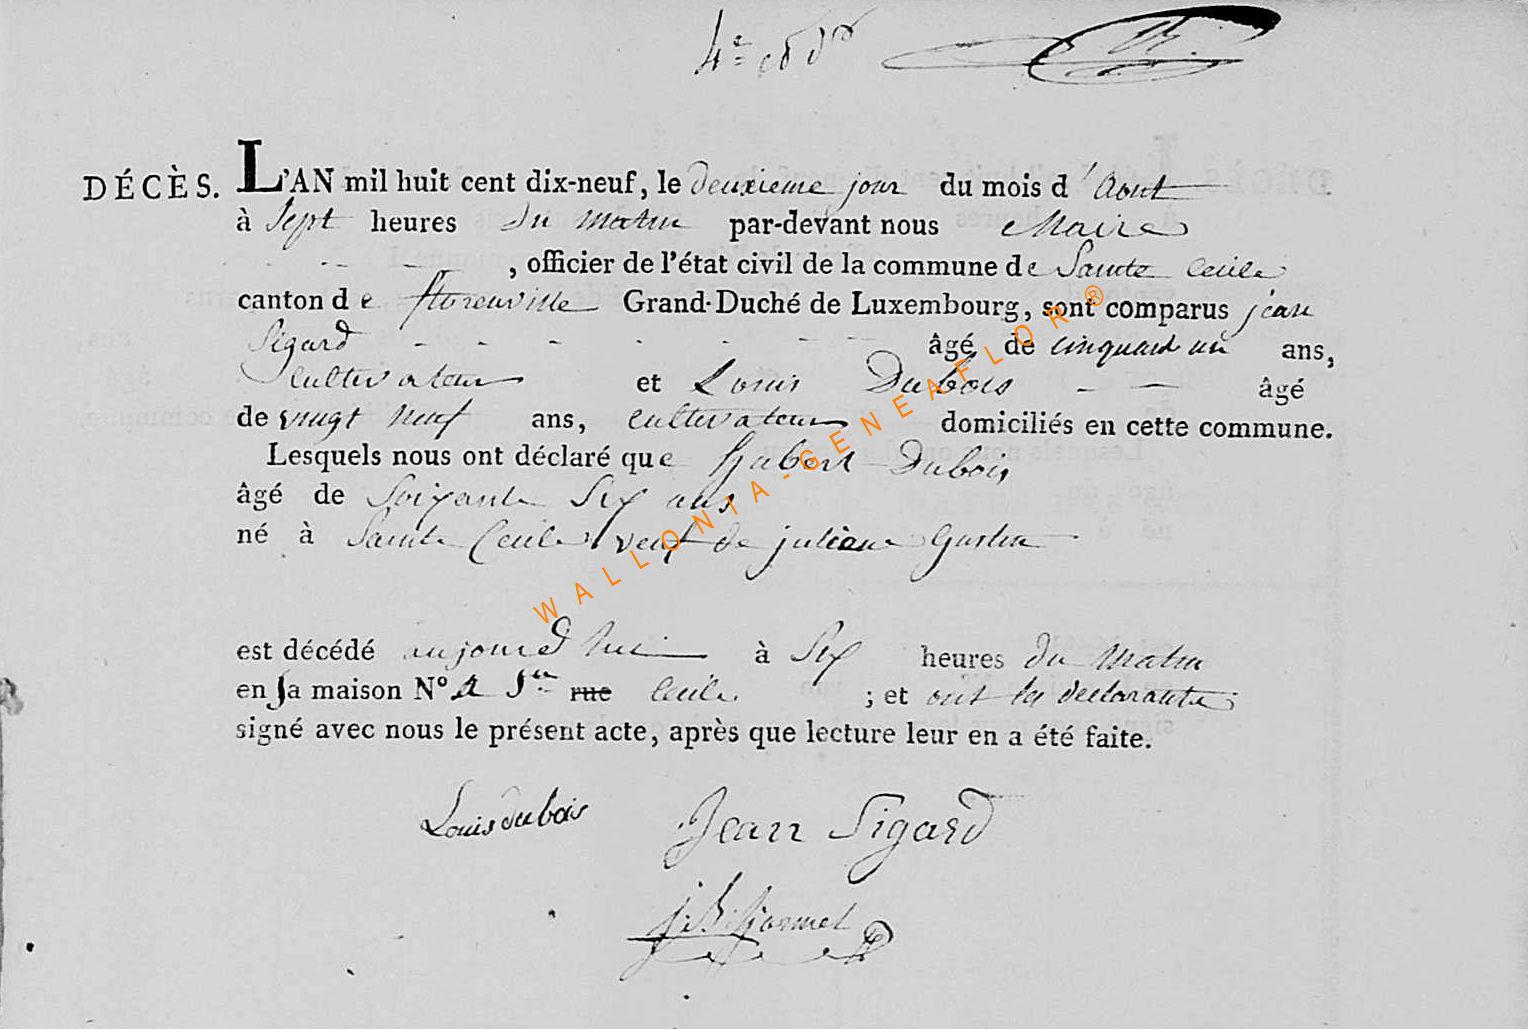 4e
DÉCÈS. L'AN mil huit cent dix-neuf, le deuxieme jour du mois d'Aout
à Sept heures du matin par-devant nous Maire
, officier de l'état civil de la commune de Sainte Cecile
canton de florenville Grand-Duché de Luxembourg, sont comparus jean
Sigard âgé de cinquant un ans,
Cultivateur et Louis Dubois âgé
de vingt neuf ans, cultivateur domiciliés en cette commune.
Lesquels nous ont déclaré que hubert Dubois
âgé de Soixante Six ans
né à Sainte Cecile veuf de juliene
est décédé aujourd'hui à Six heures du Matin
en sa maison N° à Ste rue Cecile ; et ont les declarants
signé avec nous le présent acte, après que lecture leur en a été faite.
Louis dubois Jean Sigard
j. B.
WALLONIA-GENEAFLOR®